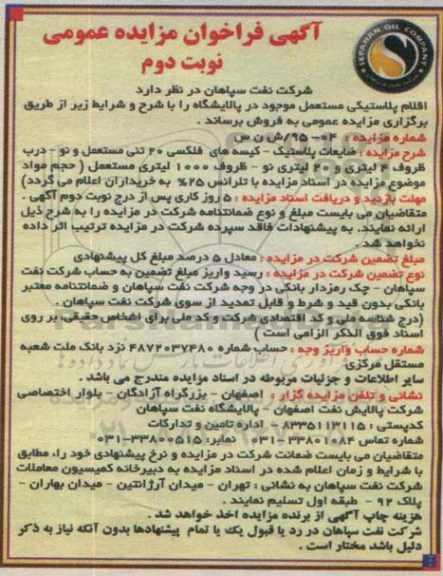 آگهی فراخوان مزایده عمومی
نوبت دوم
SEPAHAN OIL COMPANY
شرکت نفت سپاهان در نظر دارد
اقلام پلاستیکی مستعمل موجود در پالایشگاه را با شرح و شرایط زیر از طریق
برگزاری مزایده عمومی به فروش برساند .
شماره مزایده : ۰۴-۹۵/ش ن س
شرح مزایده : ضایعات پلاستیک - کیسه های فلکسی ۲۰ تنی مستعمل و نو - درب
ظروف ۴ لیتری و ۲۰ لیتری نو - ظروف ۱۰۰۰ لیتری مستعمل ( حجم مواد
موضوع مزایده در اسناد مزایده با تلرانس ۲۵% به خریداران اعلام می گردد)
مهلت بازدید و دریافت اسناد مزایده : ۵ روز کاری پس از درج نوبت دوم آگهی .
متقاضیان می بایست مبلغ و نوع ضمانتنامه شرکت در مزایده را به شرح ذیل
ارائه نمایند. به پیشنهادات فاقد سپرده شرکت در مزایده ترتیب اثر داده
نخواهد شد .
مبلغ تضمین شرکت در مزایده : معادل ۵ درصد مبلغ کل پیشنهادی
نوع تضمین شرکت در مزایده : رسید واریز مبلغ تضمین به حساب شرکت نفت
سپاهان - چک رمزدار بانکی در وجه شرکت نفت سپاهان و ضمانتنامه معتبر
بانکی بدون قید و شرط و قابل تمدید از سوی شرکت نفت سپاهان .
(درج شناسه ملی و کد اقتصادی شرکت و کد ملی برای اشخاص حقیقی، بر روی
اسناد فوق الذکر الزامی است )
شماره حساب واریز وجه : حساب شماره ۴۸۷۲۰۳۷۴۸۰ نزد بانک ملت شعبه
مستقل مرکزی
سایر اطلاعات و جزئیات مربوطه در اسناد مزایده مندرج می باشد .
نشانی و تلفن مزایده گزار : اصفهان - بزرگراه آزادگان - بلوار اختصاصی
شرکت پالایش نفت اصفهان - پالایشگاه نفت سپاهان
کدپستی : ۸۳۳۵۱۱۳۱۱۵ - اداره تامین و تدارکات
شماره تماس ۳۳۸۰۱۰۸۴-۰۳۱ نمابر: ۳۳۸۰۰۵۱۰-۰۳۱
متقاضیان می بایست ضمانت شرکت در مزایده و نرخ پیشنهادی خود را، مطابق
با شرایط و زمان اعلام شده در اسناد مزایده به دبیرخانه کمیسیون معاملات
شرکت نفت سپاهان به نشانی : تهران - میدان آرژانتین - میدان بهاران -
پلاک ۹۲ - طبقه اول تسلیم نمایند .
هزینه چاپ آگهی از برنده مزایده اخذ خواهد شد .
شرکت نفت سپاهان در رد یا قبول یک یا تمام پیشنهادها بدون آنکه نیاز به ذکر
دلیل باشد مختار است .